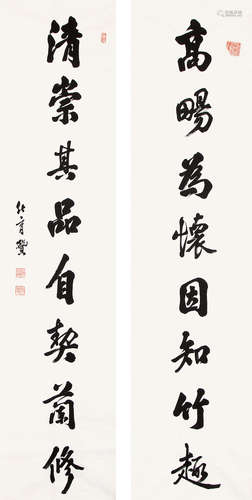 高暢為懷因知竹趣
清崇其品自契蘭修